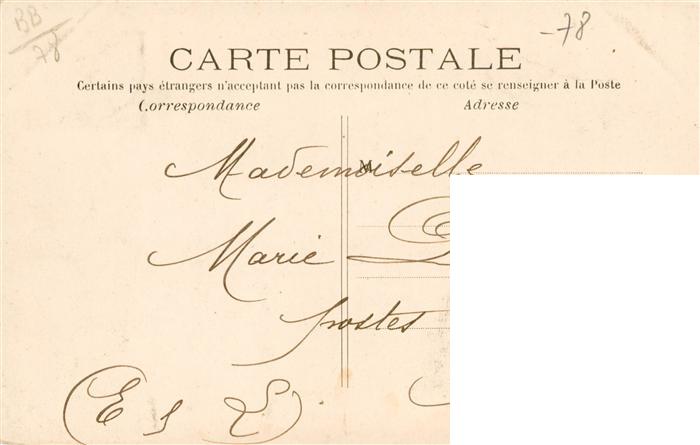 BB
78
-78
CARTE POSTALE
Certains pays étrangers n'acceptant pas la correspondance de ce coté se renseigner à la Poste
Correspondance Adresse
M
Mademoiselle
Marie
postes
(E & L)